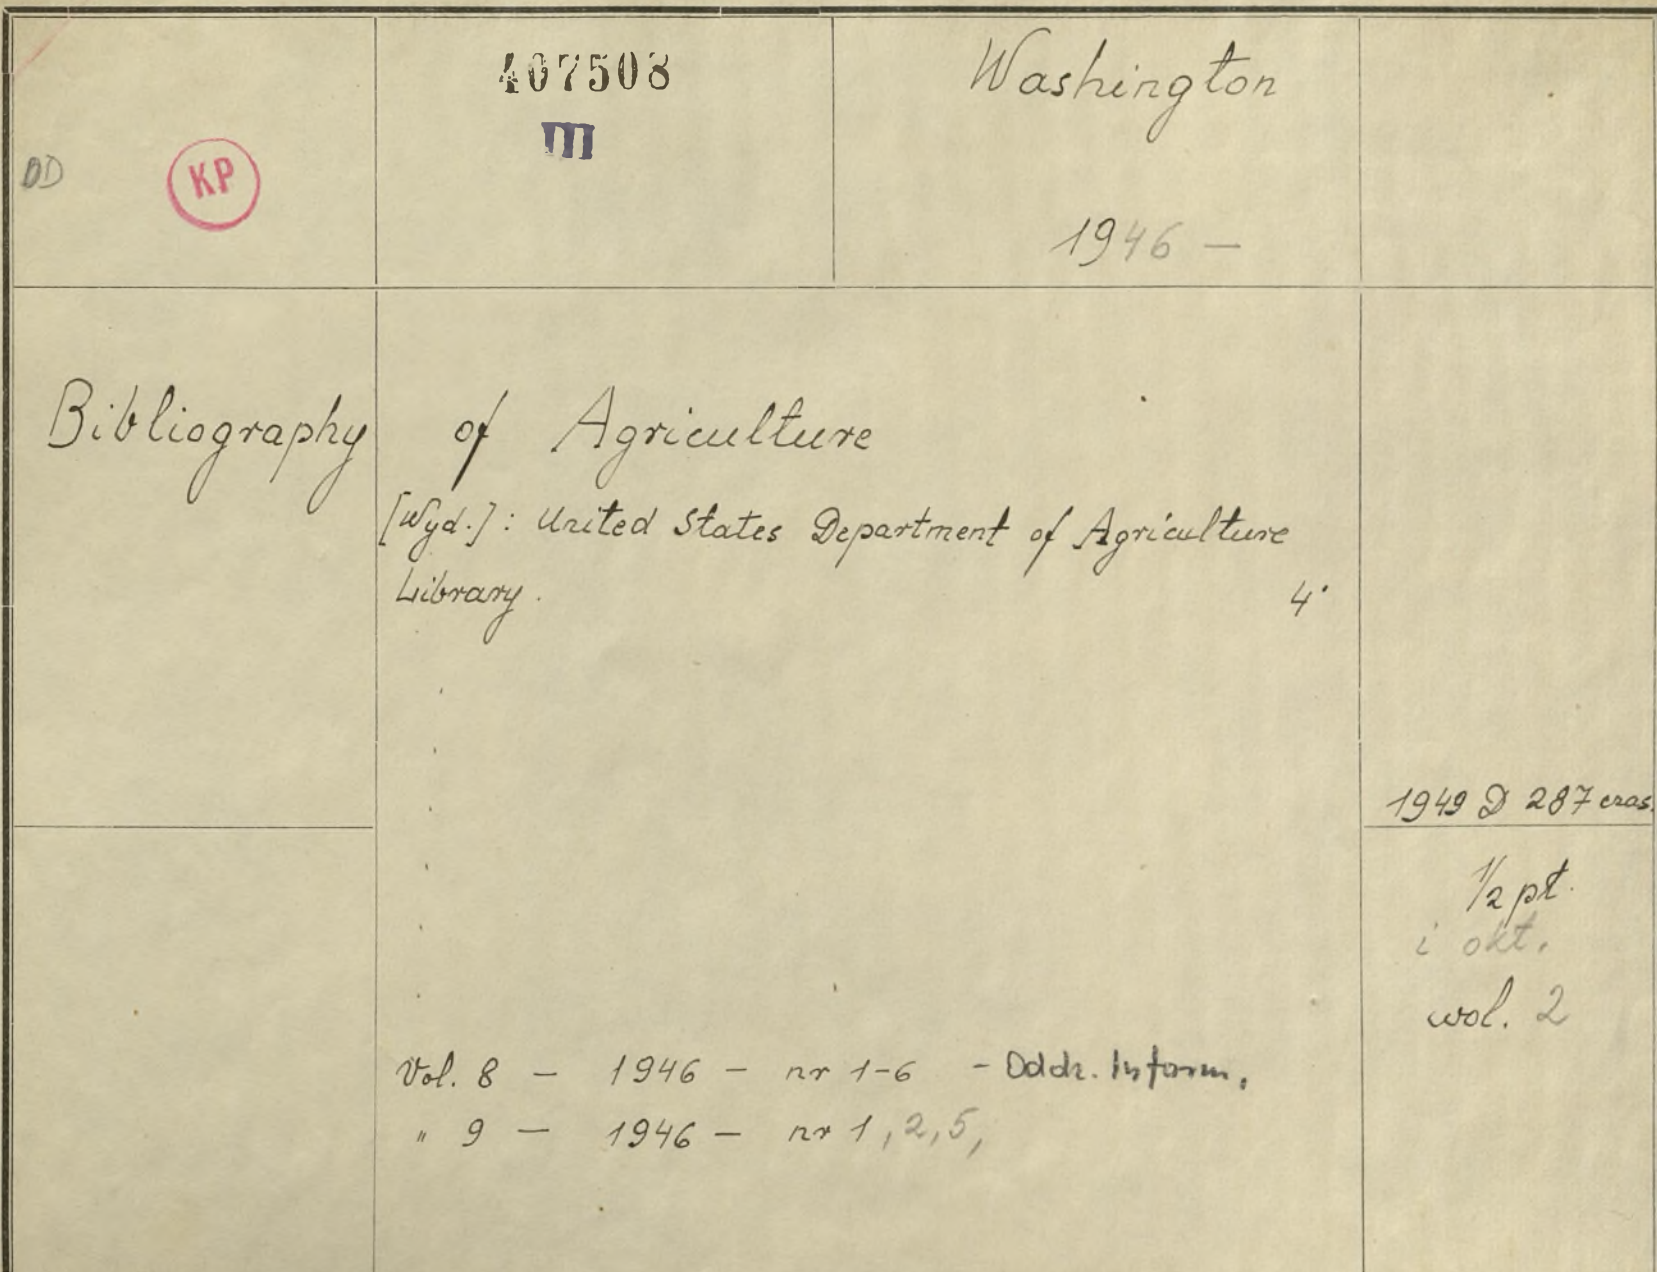 407508
III
Washington
DD
KP
1946 —
Bibliography of Agriculture
[Wyd.]: United States Department of Agriculture
Library. 4°
1949 D 287 czas.
1/2 pt.
i okt.
wol. 2
Vol. 8 — 1946 — nr 1-6 - Oddz. Inform.
" 9 — 1946 — nr 1, 2, 5,